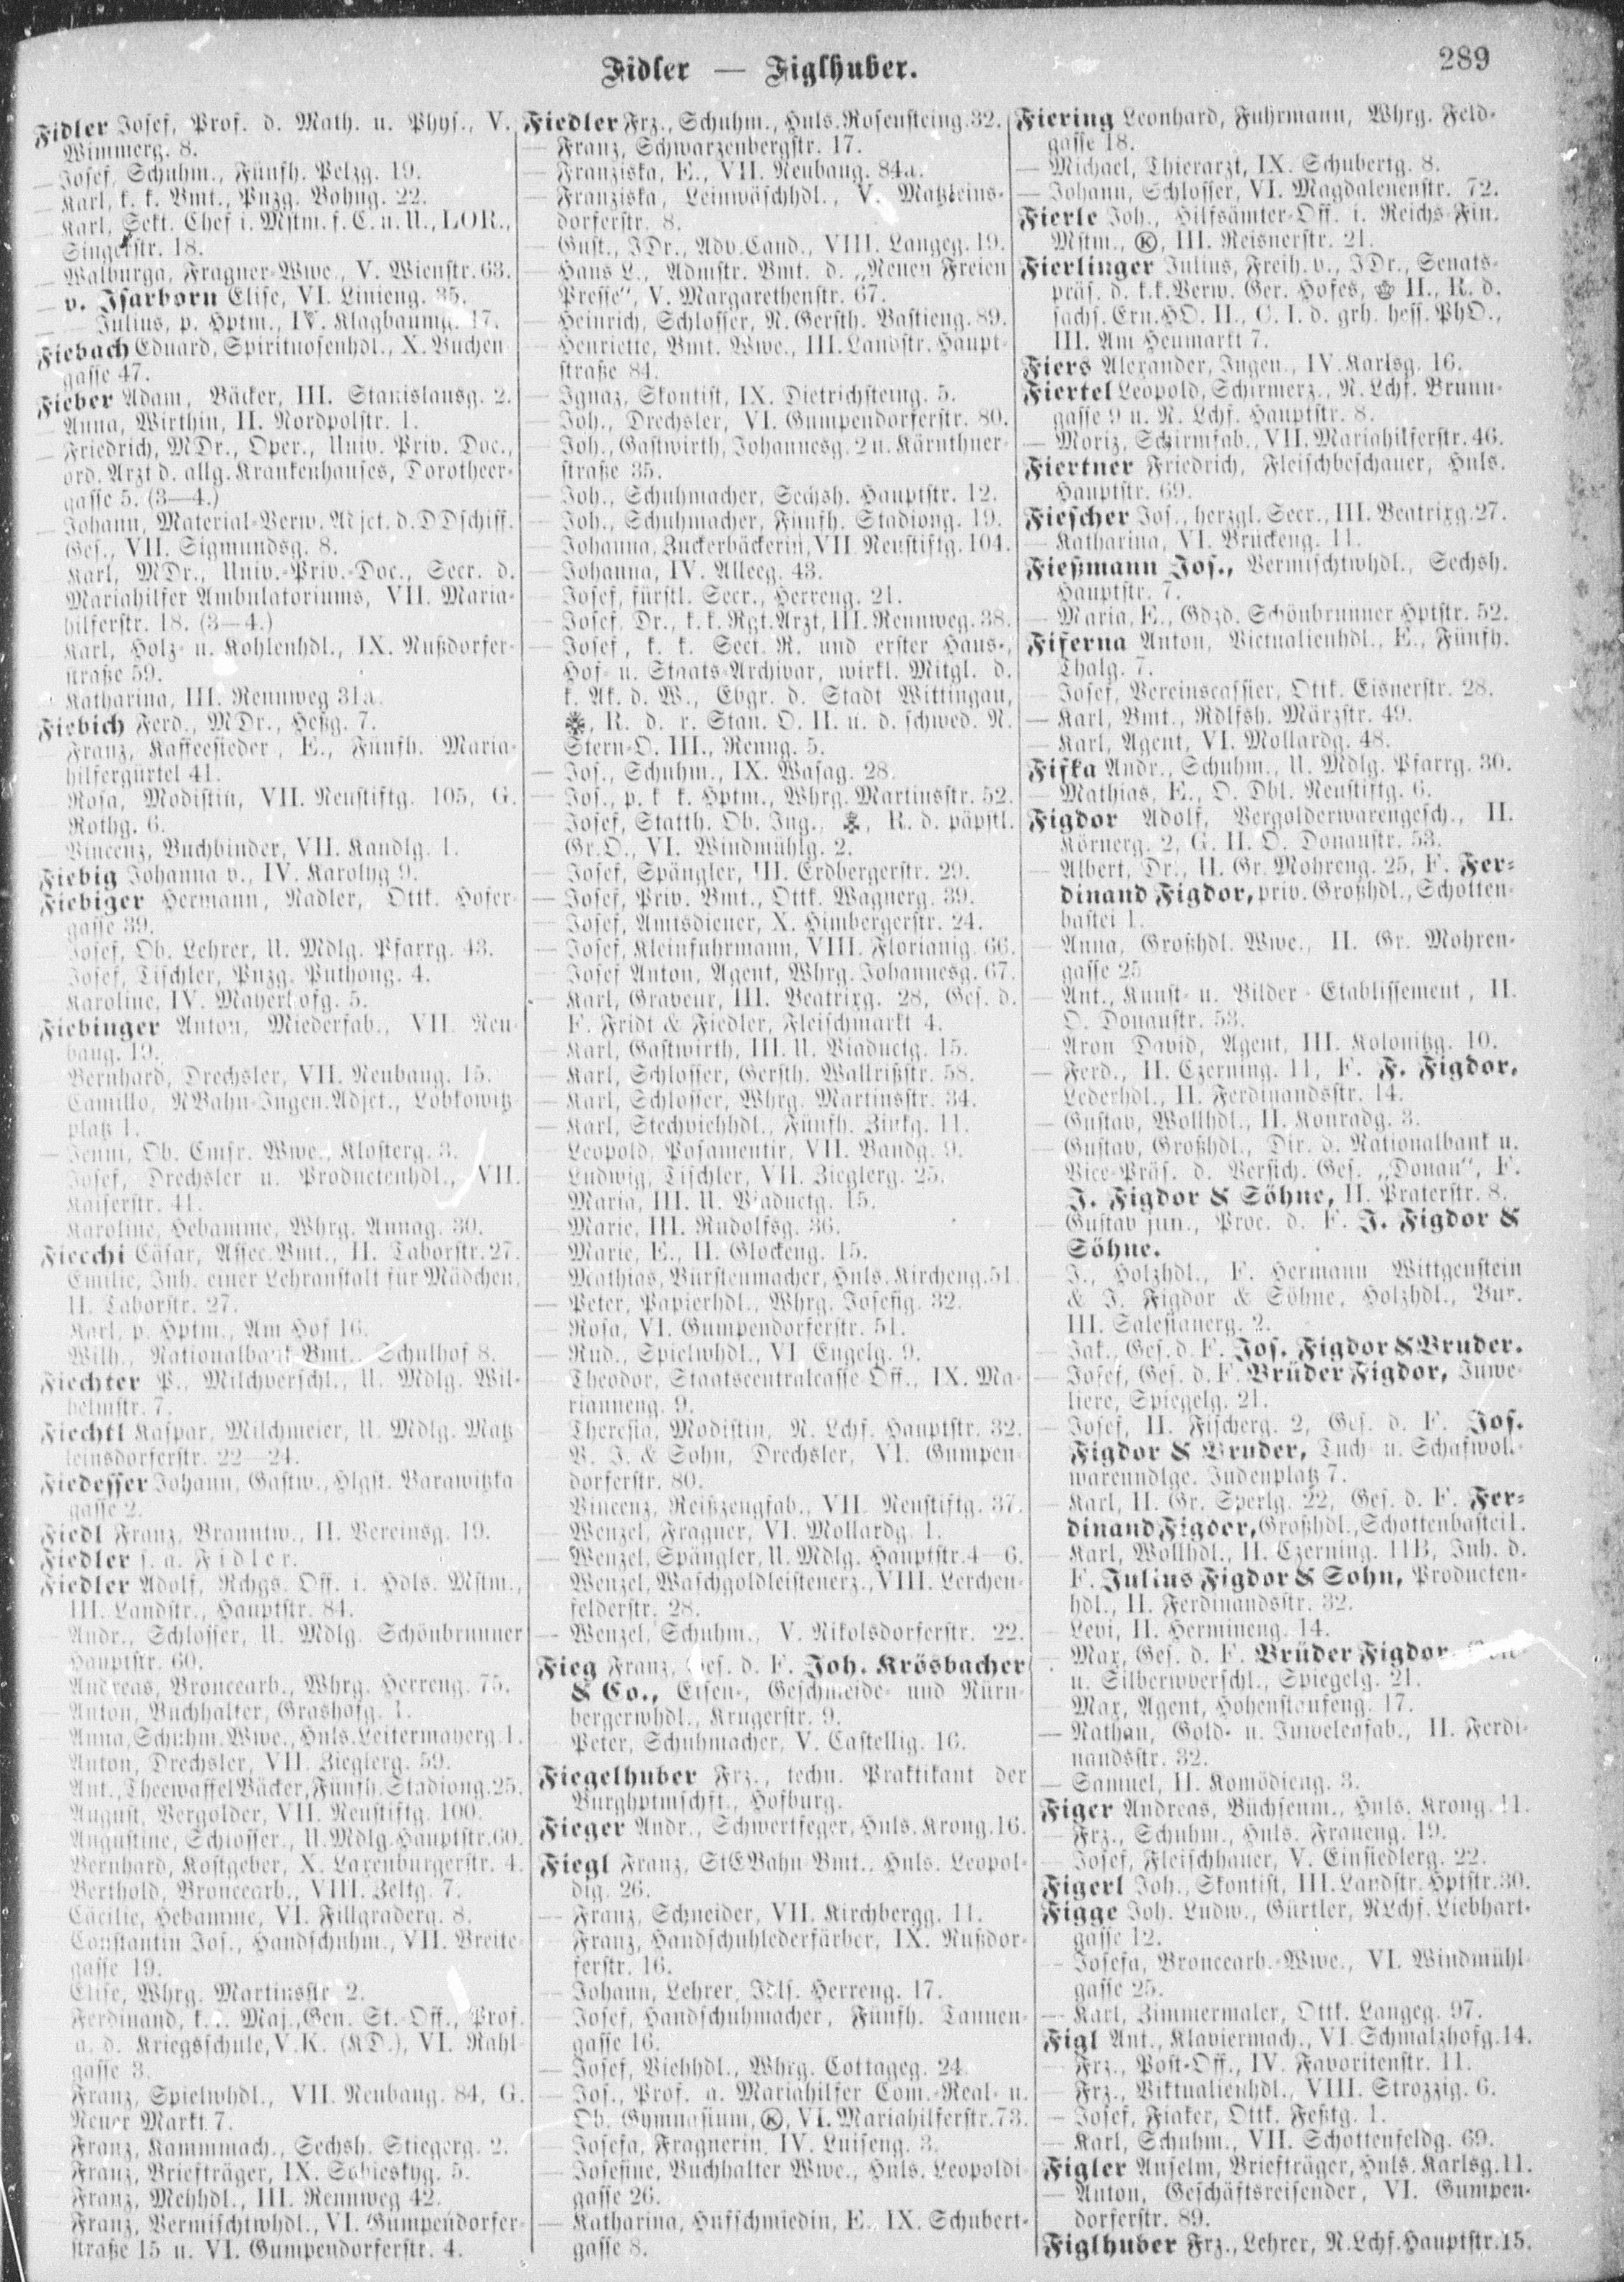 Fidler — Figlhuber.
289
Fidler Josef, Prof. d. Math. u. Phys., V.
Wimmerg. 8.
— Josef, Schuhm., Fünfh. Pelzg. 19.
— Karl, k. k. Bmt., Pnzg. Bahng. 22.
— Karl, Sekt. Chef i. Mstm. f. C. u. U., LOR.,
Singerstr. 18.
— Walburga, Fragner-Wwe., V. Wienstr. 63.
— v. Isarborn Elise, VI. Linieng. 35.
— — Julius, p. Hptm., IV. Klagbaumg. 17.
Fiebach Eduard, Spirituosenhdl., X. Buchen
gasse 47.
Fieber Adam, Bäcker, III. Stanislausg. 2.
— Anna, Wirthin, II. Nordpolstr. 1.
— Friedrich, MDr., Oper., Univ. Priv. Doc.,
ord. Arzt d. allg. Krankenhauses, Dorotheer-
gasse 5. (3—4.)
— Johann, Material-Verw. Adjct. d. DDschiff.
Ges., VII. Sigmundsg. 8.
Karl, MDr., Univ.-Priv.-Doc., Secr. d.
Mariahilfer Ambulatoriums, VII. Maria-
hilferstr. 18. (3—4.)
— Karl, Holz- u. Kohlenhdl., IX. Nußdorfer-
straße 59.
Katharina, III. Rennweg 31a.
Fiebich Ferd., MDr., Heßg. 7.
— Franz, Kaffeesieder, E., Fünfh. Maria-
hilfergürtel 41.
— Rosa, Modistin, VII. Neustiftg. 105, G.
Rothg. 6.
— Vincenz, Buchbinder, VII. Kandlg. 1.
Fiebig Johanna v., IV. Karolyg 9.
Fiebiger Hermann, Nadler, Ottk. Hofer-
gasse 39.
Josef, Ob. Lehrer, U. Mdlg. Pfarrg. 43.
Josef, Tischler, Pnzg. Puthong. 4.
Karoline, IV. Mayerhofg. 5.
Fiebinger Anton, Miederfab., VII. Neu-
baug. 19.
Bernhard, Drechsler, VII. Neubaug. 15.
Camillo, NBahn-Ingen. Adjct., Lobkowitz-
platz 1.
— Jenni, Ob. Cmsr. Wwe., Klosterg. 3.
Josef, Drechsler u. Productenhdl., VII.
Kaiserstr. 41.
Karoline, Hebamme, Whrg. Annag. 30.
Fiecchi Cäsar, Assec. Bmt., II. Taborstr. 27.
Emilie, Inh. einer Lehranstalt für Mädchen,
II. Taborstr. 27.
Karl, p. Hptm., Am Hof 16.
Wilh., Nationalbank-Bmt., Schulhof 8.
Fiechter P., Milchverschl., U. Mdlg. Wil-
helmstr. 7.
Fiechtl Kaspar, Milchmeier, U. Mdlg. Matz-
leinsdorferstr. 22—24.
Fiedesser Johann, Gastw., Hlgst. Barawitzka-
gasse 2.
Fiedl Franz, Branntw., II. Vereinsg. 19.
Fiedler s. a. Fidler.
Fiedler Adolf, Rchgs. Off. i. Hdls. Mstm.,
III. Landstr., Hauptstr. 84.
— Andr., Schlosser, U. Mdlg. Schönbrunner
Hauptstr. 60.
Andreas, Broncearb., Whrg. Herreng. 75.
— Anton, Buchhalter, Grashofg. 1.
— Anna, Schuhm. Wwe., Huls. Leitermayerg. 1.
Anton, Drechsler, VII. Zieglerg. 59.
Ant., Theewaffel Bäcker, Fünfh. Stadiong. 25.
— August, Vergolder, VII. Neustiftg. 100.
Augustine, Schlosser., U. Mdlg. Hauptstr. 60.
Bernhard, Kostgeber, X. Laxenburgerstr. 4.
— Berthold, Broncearb., VIII. Zeltg. 7.
Cäcilie, Hebamme, VI. Fillgraderg. 8.
Constantin Jos., Handschuhm., VII. Breite-
gasse 19.
Elise, Whrg. Martinsstr. 2.
Ferdinand, k. Maj., Gen. St. Off., Prof.
a. d. Kriegsschule, V. K. (KD.), VI. Rahl-
gasse 3.
Franz, Spielwhdl., VII. Neubaug. 84, G.
Neuer Markt 7.
Franz, Kammmach., Sechsh. Stiegerg. 2.
Franz, Briefträger, IX. Sobieskyg. 5.
Franz, Mehhdl., III. Rennweg 42.
Franz, Vermischtwhdl., VI. Gumpendorfer-
straße 15 u. VI. Gumpendorferstr. 4.
Fiedler Frz., Schuhm., Huls. Rosensteing. 32.
— Franz, Schwarzenbergstr. 17.
— Franziska, E., VII. Neubaug. 84a.
— Franziska, Leinwäschhdl., V. Matzleins-
dorferstr. 8.
— Gust., JDr., Adv. Cand., VIII. Langeg. 19.
— Hans L., Admstr. Bmt. d. „Neuen Freien
Presse“, V. Margarethenstr. 67.
— Heinrich, Schlosser, N. Gersth. Bastieng. 89.
— Henriette, Bmt. Wwe., III. Landstr. Haupt-
straße 84.
— Ignaz, Skontist, IX. Dietrichsteing. 5.
— Joh., Drechsler, VI. Gumpendorferstr. 80.
— Joh., Gastwirth, Johannesg. 2 u. Kärnthner-
straße 35.
— Joh., Schuhmacher, Sechsh. Hauptstr. 12.
— Joh., Schuhmacher, Fünfh. Stadiong. 19.
— Johanna, Zuckerbäckerin, VII Neustiftg. 104.
— Johanna, IV. Alleeg. 43.
— Josef, fürstl. Secr., Herreng. 21.
— Josef, Dr., k. k. Rgt. Arzt, III. Rennweg. 38.
— Josef, k. k. Sect. R. und erster Haus-,
Hof- u. Staats-Archivar, wirkl. Mitgl. d.
k. Ak. d. W., Ebgr. d. Stadt Wittingau,
, R. d. r. Stan. O. II. u. d. schwed. N.
Stern-O. III., Renng. 5.
— Jos., Schuhm., IX. Wasag. 28.
— Jos., p. k. k. Hptm., Whrg. Martinsstr. 52.
— Josef, Statth. Ob. Ing., , R. d. päpstl.
Gr. O., VI. Windmühlg. 2.
— Josef, Spängler, III. Erdbergerstr. 29.
— Josef, Priv. Bmt., Ottk. Wagnerg. 39.
— Josef, Amtsdiener, X. Himbergerstr. 24.
— Josef, Kleinfuhrmann, VIII. Florianig. 66.
— Josef Anton, Agent, Whrg. Johannesg. 67.
— Karl, Graveur, III. Beatrixg. 28, Ges. d.
F. Fridt & Fiedler, Fleischmarkt 4.
— Karl, Gastwirth, III. U. Viaductg. 15.
— Karl, Schlosser, Gersth. Wallrißstr. 58.
— Karl, Schlosser, Whrg. Martinsstr. 34.
— Karl, Stechviehhdl., Fünfh. Zinkg. 11.
— Leopold, Posamentir, VII. Bandg. 9.
— Ludwig, Tischler, VII. Zieglerg. 25.
— Maria, III. U. Viaductg. 15.
— Marie, III. Rudolfsg. 36.
— Marie, E., II. Glockeng. 15.
— Mathias, Bürstenmacher, Huls. Kircheng. 51.
— Peter, Papierhdl., Whrg. Josefig. 32.
— Rosa, VI. Gumpendorferstr. 51.
— Rud., Spielwhdl., VI. Engelg. 9.
— Theodor, Staatscentralcasse Off., IX. Ma-
rianneng. 9.
— Theresia, Modistin, N. Lchf. Hauptstr. 32.
— V. J. & Sohn, Drechsler, VI. Gumpen-
dorferstr. 80.
— Vincenz, Reißzeugfab., VII. Neustiftg. 37.
— Wenzel, Fragner, VI. Mollardg. 1.
— Wenzel, Spängler, U. Mdlg. Hauptstr. 4—6.
— Wenzel, Waschgoldleistenerz., VIII. Lerchen-
felderstr. 28.
— Wenzel, Schuhm., V. Nikolsdorferstr. 22.
Fieg Franz, Ges. d. F. Joh. Krösbacher
& Co., Eisen-, Geschmeide- und Nürn-
bergerwhdl., Krugerstr. 9.
— Peter, Schuhmacher, V. Castellig. 16.
Fiegelhuber Frz., techn. Praktikant der
Burghptmschft., Hofburg.
Fieger Andr., Schwertfeger, Huls. Krong. 16.
Fiegl Franz, StEBahn-Bmt., Huls. Leopol-
dig. 26.
— Franz, Schneider, VII. Kirchbergg. 11.
— Franz, Handschuhlederfärber, IX. Nußdor-
ferstr. 16.
— Johann, Lehrer, Herreng. 17.
— Josef, Handschuhmacher, Fünfh. Tannen-
gasse 16.
— Josef, Viehhdl., Whrg. Cottageg. 24.
— Jos., Prof. a. Mariahilfer Com.-Real- u.
Ob. Gymnasium, Ⓚ, VI. Mariahilferstr. 73.
— Josefa, Fragnerin, IV. Luiseng. 3.
— Josefine, Buchhalter Wwe., Huls. Leopoldi-
gasse 26.
— Katharina, Hufschmiedin, E., IX. Schubert-
gasse 8.
Fiering Leonhard, Fuhrmann, Whrg. Feld-
gasse 18.
— Michael, Thierarzt, IX. Schubertg. 8.
— Johann, Schlosser, VI. Magdalenenstr. 72.
Fierle Joh., Hilfsämter-Off. i. Reichs-Fin.
Mstm., Ⓚ, III. Reisnerstr. 21.
Fierlinger Julius, Freih. v., JDr., Senats-
präs. d. k.k. Verw. Ger. Hofes, II., R. d.
sachs. Ern.HO. II., C. I. d. grh. hess. PhO.,
III. Am Heumarkt 7.
Fiers Alexander, Ingen., IV. Karlsg. 16.
Fiertel Leopold, Schirmerz., N. Lchf. Brunn-
gasse 9 u. N. Lchf. Hauptstr. 8.
— Moriz, Schirmfab., VII. Mariahilferstr. 46.
Fiertner Friedrich, Fleischbeschauer, Huls.
Hauptstr. 69.
Fiescher Jos., herzgl. Secr., III. Beatrixg. 27.
— Katharina, VI. Brückeng. 11.
Fießmann Jos., Vermischtwhdl., Sechsh.
Hauptstr. 7.
— Maria, E., Gdzd. Schönbrunner Hptstr. 52.
Fiferna Anton, Victualienhdl., E., Fünfh.
Thalg. 7.
— Josef, Vereinscassier, Ottk. Eisnerstr. 28.
— Karl, Bmt., Rdlfsh. Märzstr. 49.
— Karl, Agent, VI. Mollardg. 48.
Fifka Andr., Schuhm., U. Mdlg. Pfarrg. 30.
— Mathias, E., O. Dbl. Neustiftg. 6.
Figdor Adolf, Vergolderwarengesch., II.
Körnerg. 2, G. II. O. Donaustr. 53.
— Albert, Dr., II. Gr. Mohreng. 25, F. Fer-
dinand Figdor, priv. Großhdl., Schotten-
bastei 1.
— Anna, Großhdl. Wwe., II. Gr. Mohren-
gasse 25
— Ant., Kunst- u. Bilder-Etablissement, II.
O. Donaustr. 53.
— Aron David, Agent, III. Kolonitzg. 10.
— Ferd., II. Czerning. 11, F. F. Figdor,
Lederhdl., II. Ferdinandsstr. 14.
— Gustav, Wollhdl., II. Konradg. 3.
— Gustav, Großhdl., Dir. d. Nationalbank u.
Vice-Präs. d. Versich. Ges. „Donau“, F.
J. Figdor & Söhne, II. Praterstr. 8.
— Gustav jun., Proc. d. F. J. Figdor &
Söhne.
— J., Holzhdl., F. Hermann Wittgenstein
& J. Figdor & Söhne, Holzhdl., Bur.
III. Salesianerg. 2.
— Jak., Ges. d. F. Jos. Figdor & Bruder.
— Josef, Ges. d. F. Brüder Figdor, Juwe-
liere, Spiegelg. 21.
— Josef, II. Fischerg. 2, Ges. d. F. Jos.
Figdor & Bruder, Tuch- u. Schafwoll-
warenndlge. Judenplatz 7.
— Karl, II. Gr. Sperlg. 22, Ges. d. F. Fer-
dinand Figdor, Großhdl., Schottenbastei 1.
— Karl, Wollhdl., II. Czerning. 11B, Inh. d.
F. Julius Figdor & Sohn, Producten-
hdl., II. Ferdinandsstr. 32.
— Levi, II. Hermineng. 14.
— Max, Ges. d. F. Brüder Figdor,
u. Silberwverschl., Spiegelg. 21.
— Max, Agent, Hohenstaufeng. 17.
— Nathan, Gold- u. Juwelenfab., II. Ferdi-
nandsstr. 32.
— Samuel, II. Komödieng. 3.
Figer Andreas, Büchsenm., Huls. Krong. 11.
— Frz., Schuhm., Huls. Fraueng. 19.
— Josef, Fleischhauer, V. Einsiedlerg. 22.
Figerl Joh., Skontist, III. Landstr. Hptstr. 30.
Figge Joh. Ludw., Gürtler, NLchf. Liebhart-
gasse 12.
— Josefa, Broncearb.-Wwe., VI. Windmühl-
gasse 25.
— Karl, Zimmermaler, Ottk. Langeg. 97.
Figl Ant., Klaviermach., VI. Schmalzhofg. 14.
— Frz., Post-Off., IV. Favoritenstr. 11.
— Frz., Viktualienhdl., VIII. Strozzig. 6.
— Josef, Fiaker, Ottk. Feßtg. 1.
— Karl, Schuhm., VII. Schottenfeldg. 69.
Figler Anselm, Briefträger, Huls. Karlsg. 11.
— Anton, Geschäftsreisender, VI. Gumpen-
dorferstr. 89.
Figlhuber Frz., Lehrer, N. Lchf. Hauptstr. 15.